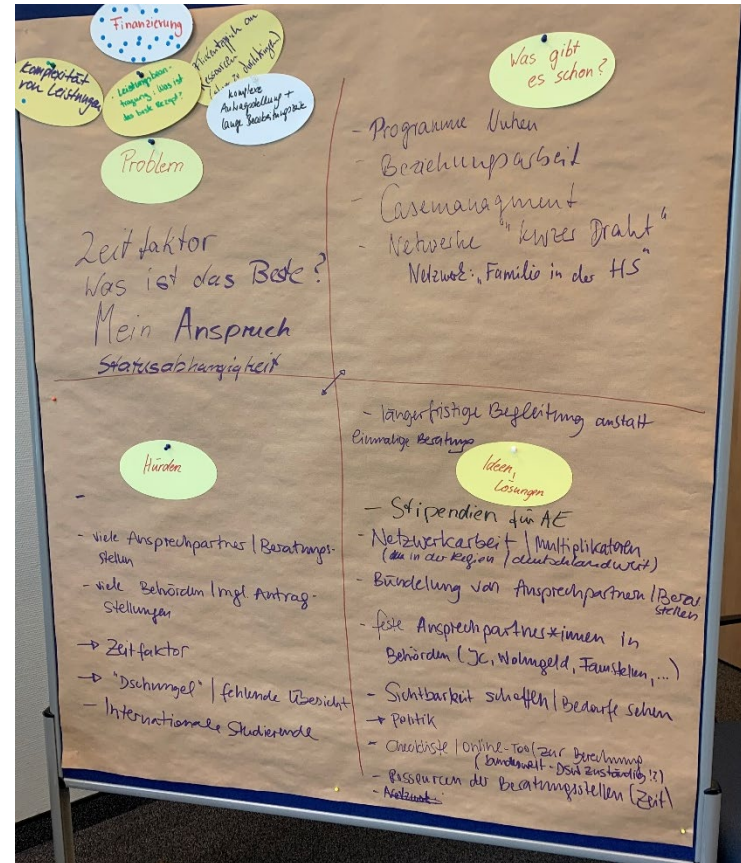 Finanzierung
Komplexität
von Leistungen
Leistungsbean-
tragung: Was ist
das beste Rezept?
Flickenteppich an
Ressourcen
komplexe
Antragstellung +
lange Bearbeitungszeit
Problem
Zeitfaktor
Was ist das Beste?
Mein Anspruch
Statusabhängigkeit
Was gibt
es schon?
- Programme Nuhen
- Beziehungsarbeit
- Casemanagment
- Netwerke "kurzer Draht"
Netzwerk: „Familie in der HS"
Hürden
-
- viele Ansprechpartner / Beratungs-
stellen
- viele Behörden / mgl. Antrag-
stellungen
→ Zeitfaktor
→ "Dschungel" / fehlende Übersicht
- Internationale Studierende
- längerfristige Begleitung anstatt
einmalige Beratung
Ideen,
Lösungen
- Stipendien für AE
- Netzwerkarbeit / Multiplikatoren
(in der Region / deutschlandweit)
- Bündelung von Ansprechpartnern /
stellen
- feste Ansprechpartner*innen in
Behörden (JC, Wohngeld, Famstellen, ...)
- Sichtbarkeit schaffen / Bedarfe sehen
→ Politik
- Checkliste / Online-Tool zur Berechnung
(bundesweit - DSW zuständig!?)
- Ressourcen der Beratungsstellen (Zeit)